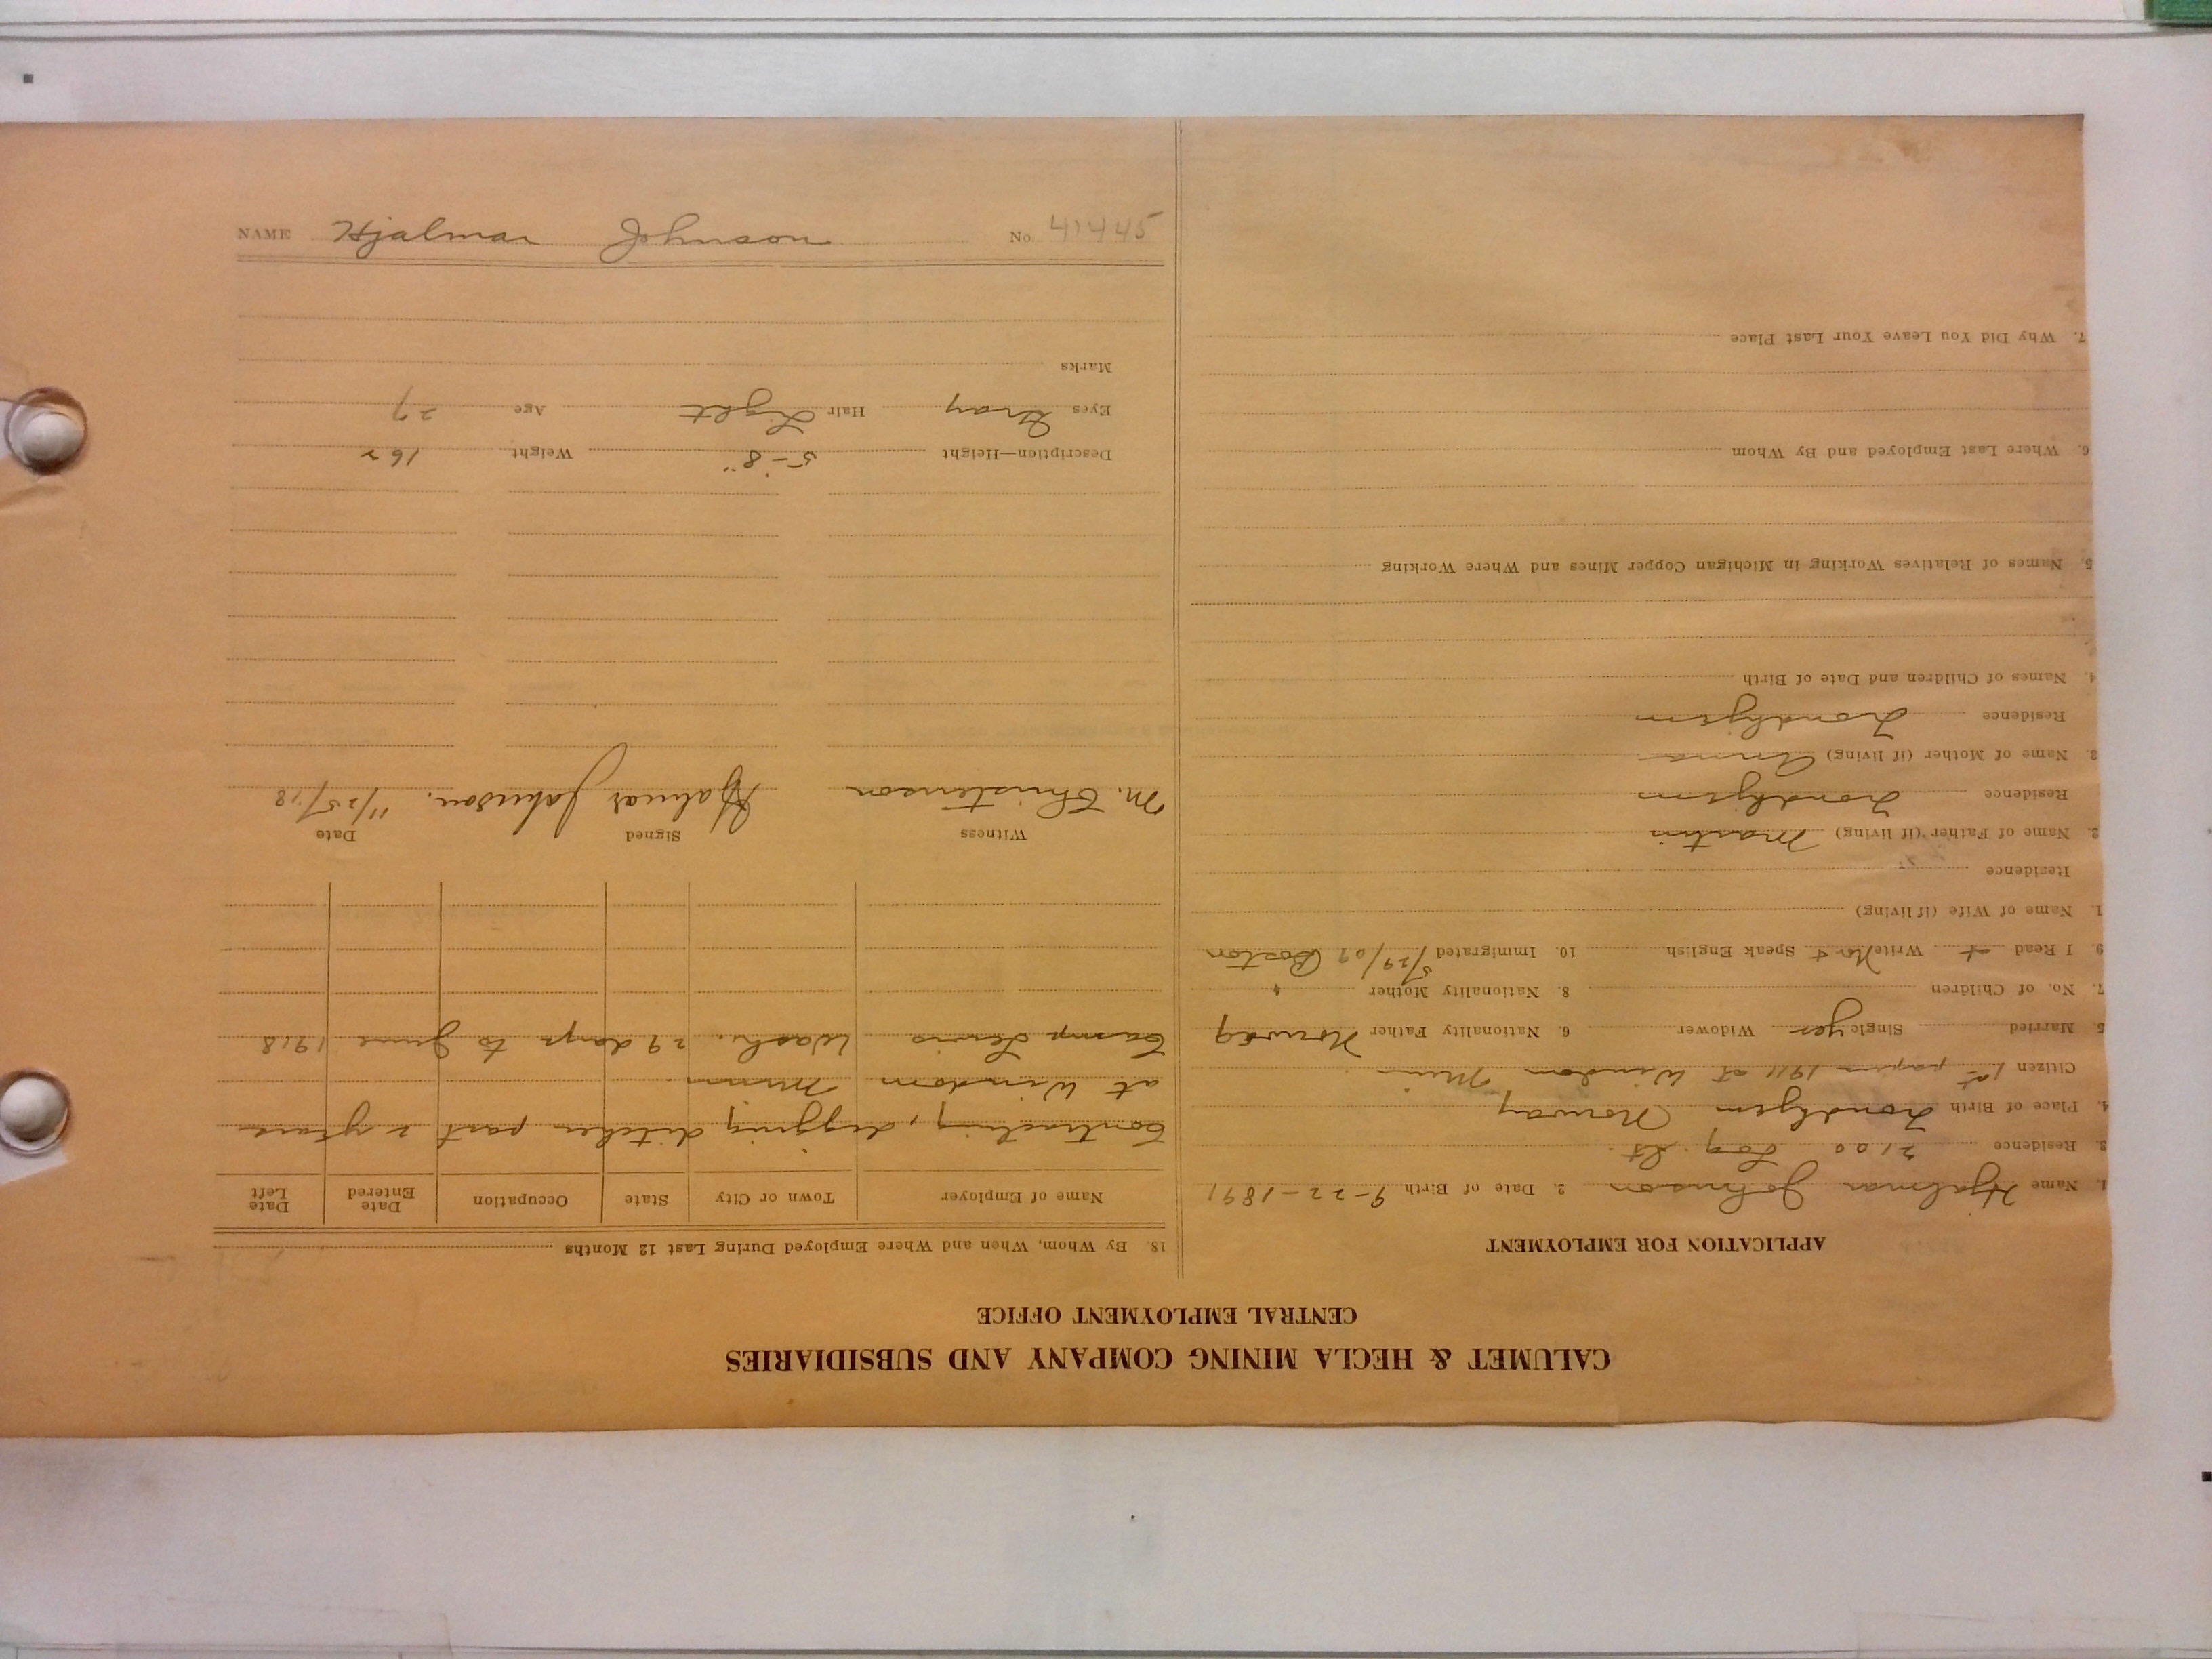 CALUMET & HECLA MINING COMPANY AND SUBSIDIARIES
CENTRAL EMPLOYMENT OFFICE
APPLICATION FOR EMPLOYMENT
1. Name Hjalmar Johnson 2. Date of Birth 9-22-1891
3. Residence 2100 Log. St.
4. Place of Birth Trondhjem Norway
Citizen 1st papers 1911 at Windom Minn
5. Married Single yes Widower 6. Nationality Father Norway
7. No. of Children 8. Nationality Mother "
9. I Read + Write Nor + Speak English 10. Immigrated 5/29/09 Boston
1. Name of Wife (if living)
Residence
2. Name of Father (if living) Martin
Residence Trondhjem
3. Name of Mother (if living) Anna
Residence Trondhjem
4. Names of Children and Date of Birth
5. Names of Relatives Working in Michigan Copper Mines and Where Working
6. Where Last Employed and By Whom
7. Why Did You Leave Your Last Place
18. By Whom, When and Where Employed During Last 12 Months
Name of Employer Town or City State Occupation Date Entered Date Left
Contracting, digging ditches past 2 years
at Windom Minn
Camp Lewis Wash. 29 days to June 1918
Witness Signed Date
M. Christenson Hjalmar Johnson. 11/25/18
Description—Height 5-8" Weight 162
Eyes Gray Hair Light Age 27
Marks
NAME Hjalmar Johnson No 41445